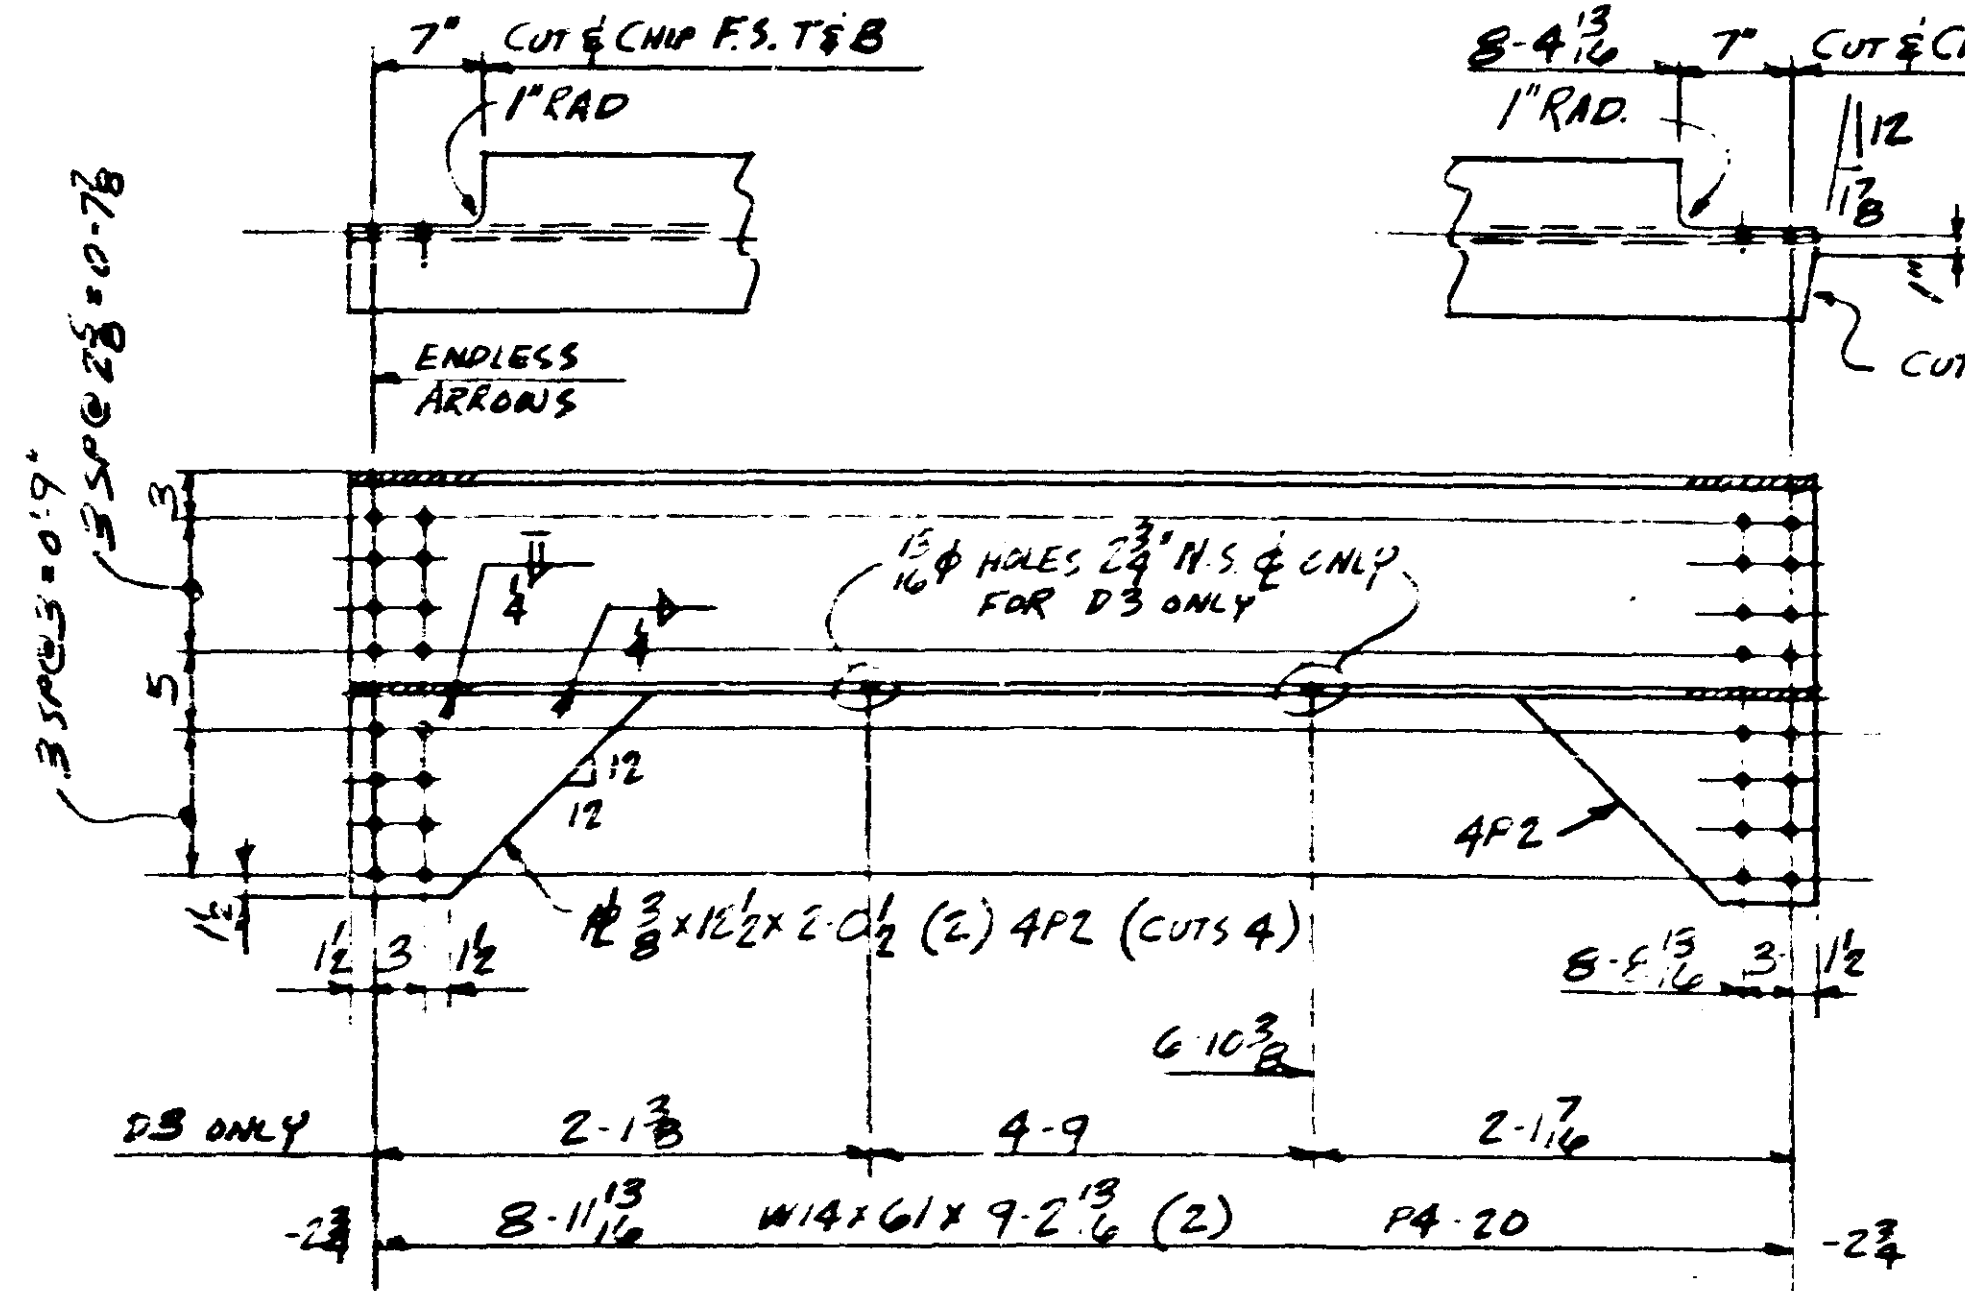 7" CUT & CHIP F.S. T & B
8-4 13/16 7" CUT & C
1" RAD
1" RAD.
12
1 7/8
1"
3 SP @ 2 5/8 = 0-7 7/8
ENDLESS
ARROWS
CUT
3 SP @ 3 = 0'-9"
3
5
1 1/2
1/4
1/4
15/16 ϕ HOLES 2 3/4" N.S. ℄ ONLY
FOR D3 ONLY
12
12
4P2
℄ 3/8 x 12 1/2 x 2-0 1/2 (2) 4P2 (CUTS 4)
1 1/2 3 1 1/2
8-8 13/16 3 1 1/2
6-10 3/8
D3 ONLY 2-1 3/8 4-9 2-1 7/16
-2 3/4 8-11 13/16 W14 x 61 x 9-2 13/16 (2) P4-20 -2 3/4